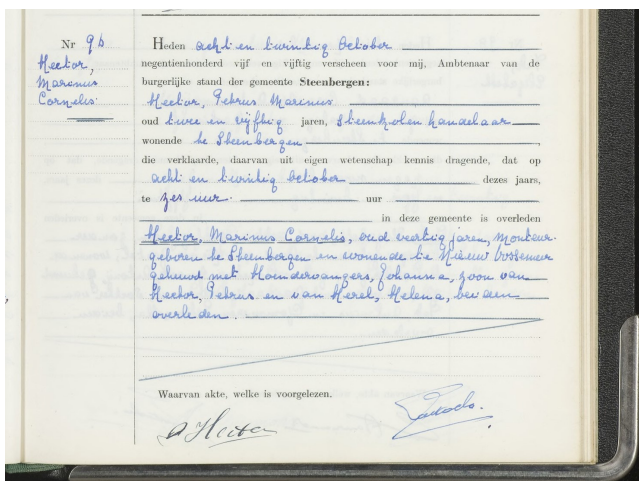 Nr 96
Hector,
Marinus
Cornelis.
Heden acht en twintig October
negentienhonderd vijf en vijftig verscheen voor mij, Ambtenaar van de
burgerlijke stand der gemeente Steenbergen:
Hector, Petrus Marinus
oud twee en vijftig jaren, steenkolenhandelaar
wonende te Steenbergen,
die verklaarde, daarvan uit eigen wetenschap kennis dragende, dat op
acht en twintig October dezes jaars,
te zes uur. uur
in deze gemeente is overleden
Hector, Marinus Cornelis, oud veertig jaren, monteur.
geboren te Steenbergen en wonende te Nieuw Vossemeer
gehuwd met Hoendervangers, Johanna, zoon van
Hector, Petrus en van Herel, Helena, beiden
overleden.
Waarvan akte, welke is voorgelezen.